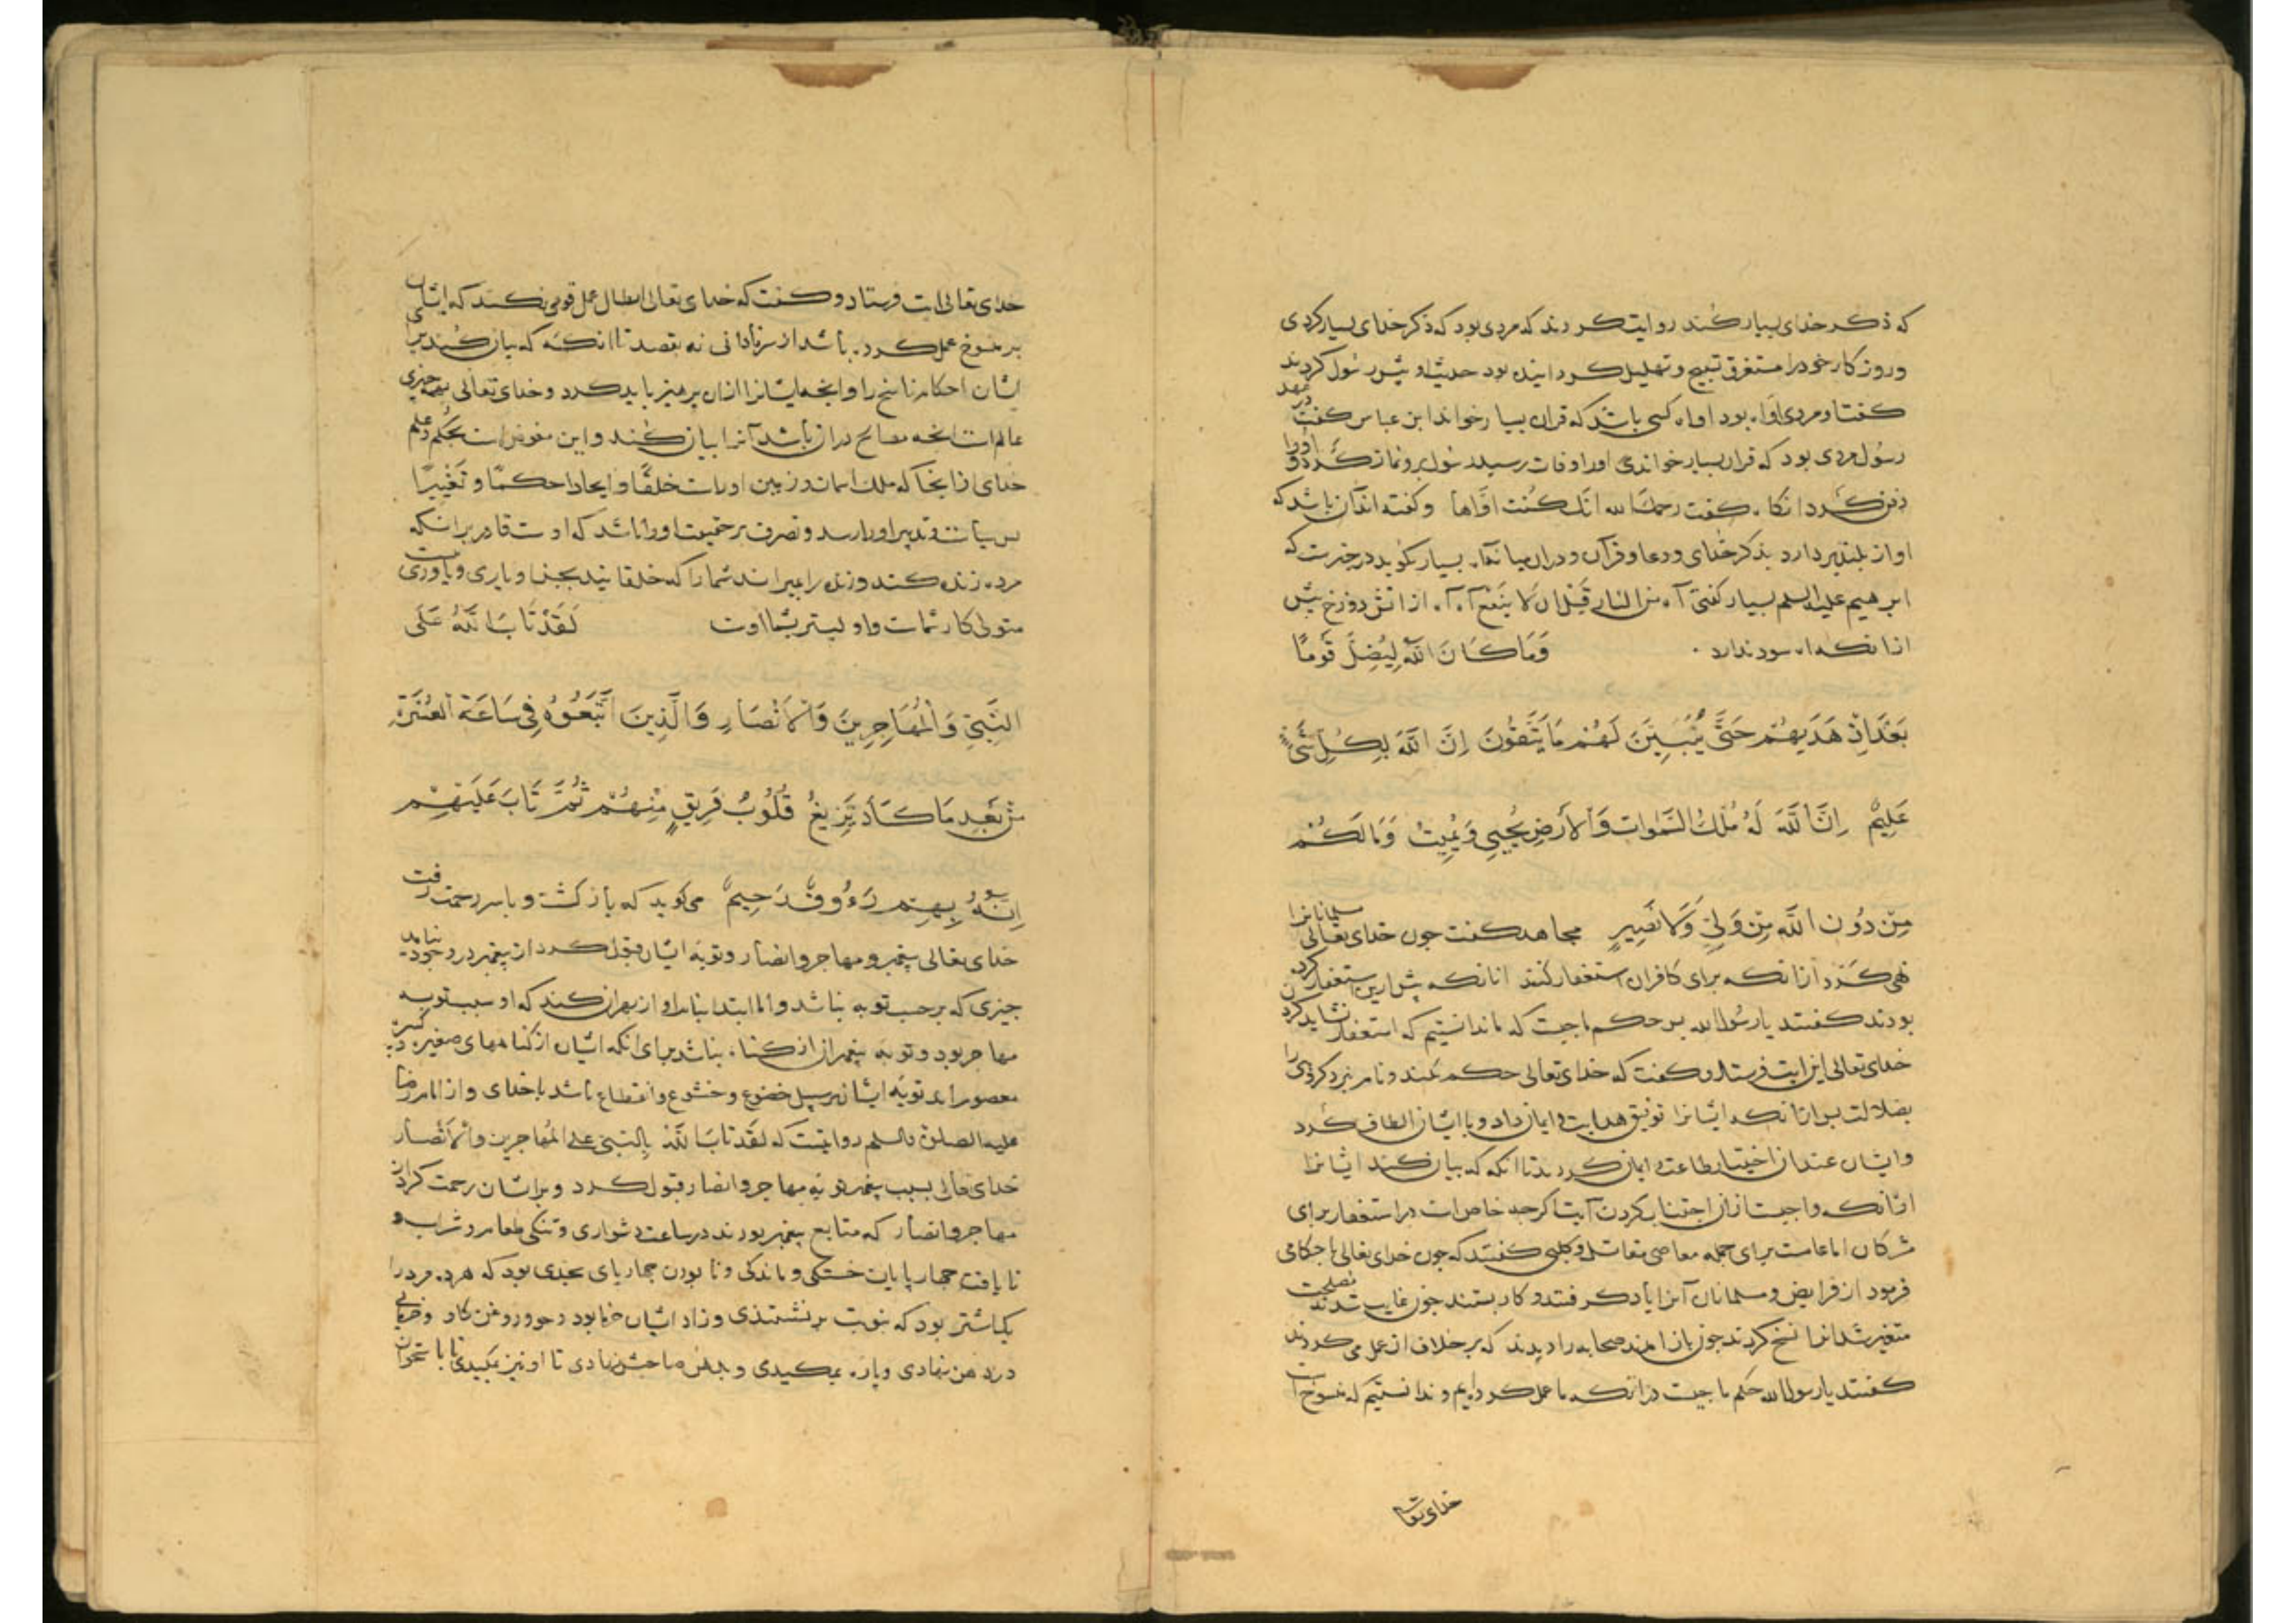 که ذکر خدای بسیار کند روایت کردند که مردی بود که ذکر خدای بسیار کردی
و روزکار خود را مستغرق تسبیح و تهلیل کردانیده بود حدیث او پیش رسول کردند
کفت او مردی اوّاه بود اواه کسی باشد که قران بسیار خواند ابن عباس کفت در عهد
رسول مردی بود که قران بسیار خواندی او را وفات رسید رسول برو نماز کرد و او را
دفن کرد انکاه کفت رحمک الله انّک کنت اوّاها و کفته اند آن باشد که
اواز بلند بردارد بذکر خدای و دعا و قرآن و دران میانه آه بسیار کوید در خبرست که
ابرهیم علیه السلم بسیار کفتی آه من النار قبل ان لا ینفع آه آه از اتش دوزخ پیش
ازانکه اه سود ندارد · وَمَا كَانَ اللّٰهُ لِيُضِلَّ قَوْمًا
بَعْدَ اِذْ هَدَيهُمْ حَتَّى يُبَيِّنَ لَهُمْ مَا يَتَّقُونَ اِنَّ اللّٰهَ بِكُلِّ شَيْءٍ
عَلِيمٌ اِنَّ اللّٰهَ لَهُ مُلْكُ السَّمٰوَاتِ وَالْاَرْضِ يُحْيِي وَيُمِيتُ وَمَا لَكُمْ
مِنْ دُونِ اللّٰهِ مِنْ وَلِيٍّ وَلَا نَصِيرٍ مجاهد کفت چون خدای تعالی مسلمانانرا
نهی کرد ازانکه برای کافران استغفار کنند انانکه پیش ازین استغفار کرده
بودند کفتند یا رسول الله بر حکم ما چیست که ما ندانستیم که استغفار نشاید کرد
خدای تعالی این ایت فرستاد و کفت که خدای تعالی حکم نکند و نام نبرد کروهی را
بضلالت پس ازانکه ایشانرا توفیق هدایت و ایمان داد و با ایشان الطاف کرد
و ایشان عند ان اختیار طاعت و ایمان کردند تا انکه که بیان کند ایشانرا
ازانکه واجبست ازان اجتناب کردن آیت اکرچه خاص است در استغفار برای
مشرکان اما عامست برای جمله معاصی مقاتل و کلبی کفتند که چون خدای تعالی احکامی
فرمود از فرایض و مسلمانان آنرا یاد کرفتند و کار بستند چون غایب شدند مصلحت
متغیر شد انرا نسخ کردند چون باز امدند صحابه را دیدند که بر خلاف ان عمل می کردند
کفتند یا رسول الله حکم ما چیست در انکه ما عمل کرده ایم و ندانستیم که منسوخ است
خدای تعالی
خدای تعالی ایت فرستاد و کفت که خدای تعالی ابطال عمل قومی نکند که ایشان
بر منسوخ عمل کرده باشد از سر نادانی نه بقصد تا انکه که بیان کند برای
ایشان احکام ناسخ را و انچه ایشانرا ازان پرهیز باید کرد و خدای تعالی بهمه چیزی
عالم است انچه مصالح دران باشد آنرا بیان کند و این مفوض است بحکم و علم
خدای ازانجا که ملک اسمان و زمین او راست خلقًا و ایجادا حکمًا و تغییرًا
پس سیاست و تدبیر او را رسد و تصرف بر حقیقت او را باشد که اوست قادر برانکه
مرده زنده کند و زنده را بمیراند شما را که خلقانید بجز او یاری و یاوری نیست
متولی کار شماست و اولیتر بشما اوست لَقَدْ تَابَ اللّٰهُ عَلَى
النَّبِيِّ وَالْمُهَاجِرِينَ وَالْاَنْصَارِ وَالَّذِينَ اتَّبَعُوهُ فِي سَاعَةِ الْعُسْرَةِ
مِنْ بَعْدِ مَا كَادَ تَزِيغُ قُلُوبُ فَرِيقٍ مِنْهُمْ ثُمَّ تَابَ عَلَيْهِمْ
اِنَّهُ بِهِمْ رَءُوفٌ رَحِيمٌ می کوید که باز کشت و با سر رحمت رفت
خدای تعالی پیغمبر و مهاجر و انصار و توبه ایشان قبول کرد از پیغمبر در وجود نیامد
چیزی که بر حسب توبه باشد و اما ابتدا بنام او ازبهران کند که او سبب توبه
مهاجر بود و توبه پیغمبر از ان کناه نباشد برای انکه ایشان از کناههای صغیره و کبیره
معصوم اند توبه ایشان بر سبیل خضوع و خشوع و انقطاع باشد با خدای و از امام رضا
علیه الصلوة والسلم روایتست که لقد تاب اللّٰه بالنبی علی المهاجرین والانصار
خدای تعالی بسبب پیغمبر توبه مهاجر و انصار قبول کرد و برایشان رحمت کرد ان
مهاجر و انصار که متابع پیغمبر بودند در ساعت دشواری و تنکی طعام و شراب و
نایافت چهارپایان خستکی و ماندکی و نابودن چهارپای بحدی بود که هر ده مرد را
یکتا شتر بود که بنوبت برنشستندی و زاد ایشان خرما بود و جو و روغن کاو و خرمایی
در دهن نهادی و پاره بمکیدی و بدهن صاحبش نهادی تا او نیز بمکیدی تا با ستخوان